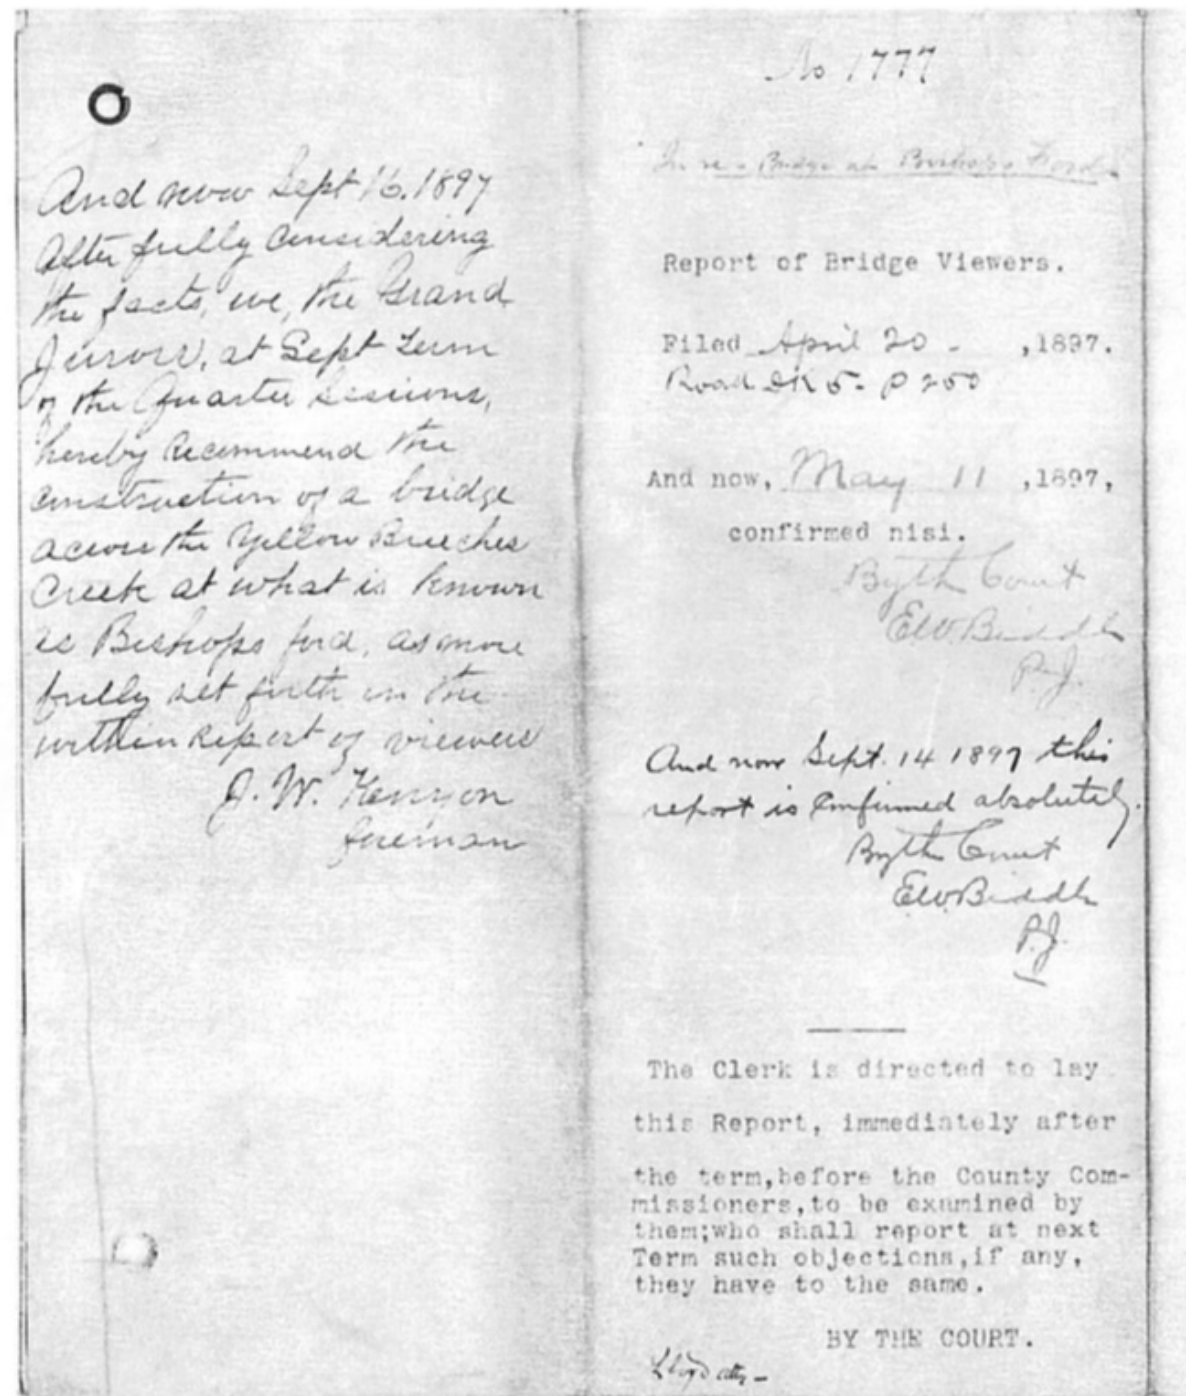 And now Sept 16. 1897
After fully considering
the facts, we, the Grand
Jurors, at Sept Term
of the Quarter Sessions,
hereby recommend the
construction of a bridge
across the Yellow Breeches
Creek at what is known
as Bishops ford, as more
fully set forth in the
within report of viewers
J. W. Kenyon
foreman
No 1777
In re Bridge at Bishops Ford
Report of Bridge Viewers.
Filed April 20 - , 1897.
Road DK 5 - P 250
And now, May 11 , 1897,
confirmed nisi.
By the Court
E.W. Biddle
P.J.
And now Sept. 14 1897 this
report is confirmed absolutely.
By the Court
E.W. Biddle
P.J.
The Clerk is directed to lay
this Report, immediately after
the term, before the County Com-
missioners, to be examined by
them; who shall report at next
Term such objections, if any,
they have to the same.
BY THE COURT.
Lloyd atty -